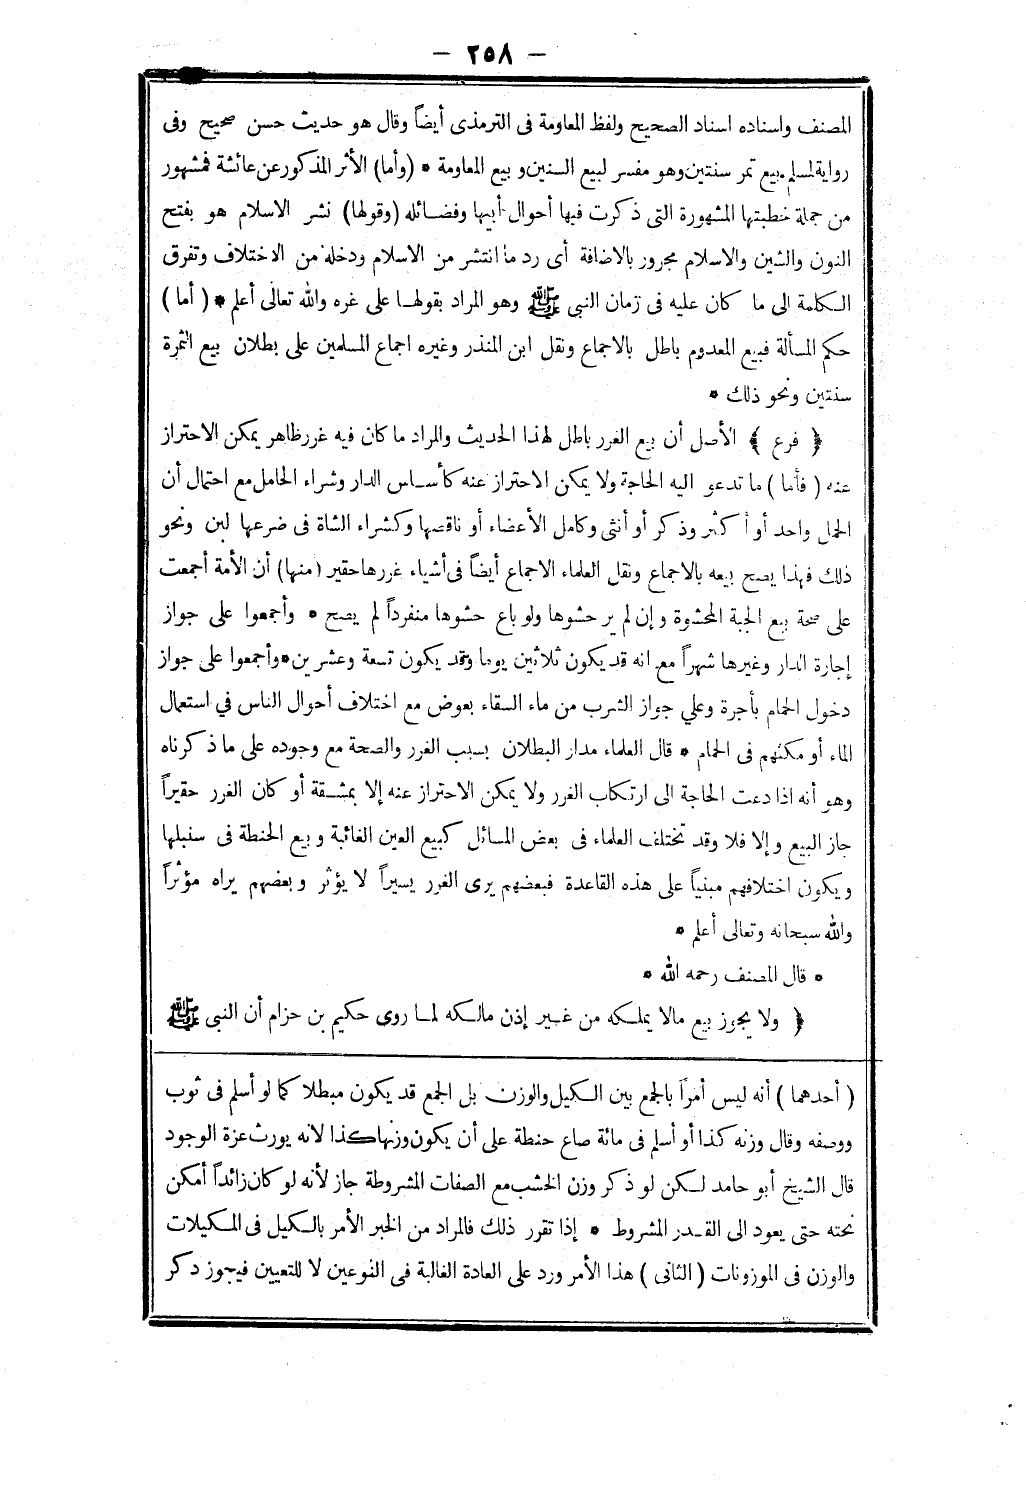 — ٢٥٨ —
المصنف واسناده اسناد الصحيح ولفظ المعاومة فى الترمذى أيضاً وقال هو حديث حسن صحيح وفى
رواية لمسلم بيع ثمر سنتين وهو مفسر لبيع السنين وبيع المعاومة * (وأما) الأثر المذكور عن عائشة فمشهور
من جملة خطبتها المشهورة التى ذكرت فيها أحوال أبيها وفضائله (وقولها) نشر الاسلام هو بفتح
النون والشين والاسلام مجرور بالاضافة أى رد ما انتشر من الاسلام ودخله من الاختلاف وتفرق
الكلمة الى ما كان عليه فى زمان النبى ﷺ وهو المراد بقولها على غره والله تعالى أعلم * ( أما )
حكم المسألة فبيع المعدوم باطل بالاجماع ونقل ابن المنذر وغيره اجماع المسلمين على بطلان بيع الثمرة
سنتين ونحو ذلك *
﴿ فرع ﴾ الأصل أن بيع الغرر باطل لهذا الحديث والمراد ما كان فيه غرر ظاهر يمكن الاحتراز
عنه ( فأما ) ما تدعو اليه الحاجة ولا يمكن الاحتراز عنه كأساس الدار وشراء الحامل مع احتمال أن
الحمل واحد أو أكثر وذكر أو أنثى وكامل الأعضاء أو ناقصها وكشراء الشاة فى ضرعها لبن ونحو
ذلك فهذا يصح بيعه بالاجماع ونقل العلماء الاجماع أيضاً فى أشياء غررها حقير (منها) أن الأمة أجمعت
على صحة بيع الجبة المحشوة وإن لم ير حشوها ولو باع حشوها منفرداً لم يصح * وأجمعوا على جواز
إجارة الدار وغيرها شهراً مع انه قد يكون ثلاثين يوما وقد يكون تسعة وعشرين * وأجمعوا على جواز
دخول الحمام بأجرة وعلي جواز الشرب من ماء السقاء بعوض مع اختلاف أحوال الناس في استعمال
الماء أو مكثهم فى الحمام * قال العلماء مدار البطلان بسبب الغرر والصحة مع وجوده على ما ذكرناه
وهو أنه اذا دعت الحاجة الى ارتكاب الغرر ولا يمكن الاحتراز عنه إلا بمشقة أو كان الغرر حقيراً
جاز البيع وإلا فلا وقد تختلف العلماء فى بعض المسائل كبيع العين الغائبة وبيع الحنطة فى سنبلها
ويكون اختلافهم مبنياً على هذه القاعدة فبعضهم يرى الغرر يسيراً لا يؤثر وبعضهم يراه مؤثراً
والله سبحانه وتعالى أعلم *
* قال المصنف رحمه الله *
﴿ ولا يجوز بيع مالا يملكه من غير إذن مالكه لما روى حكيم بن حزام أن النبى ﷺ
( أحدهما ) أنه ليس أمراً بالجمع بين الكيل والوزن بل الجمع قد يكون مبطلا كما لو أسلم فى ثوب
ووصفه وقال وزنه كذا أو أسلم فى مائة صاع حنطة على أن يكون وزنها كذا لانه يورث عزة الوجود
قال الشيخ أبو حامد لكن لو ذكر وزن الخشب مع الصفات المشروطة جاز لأنه لو كان زائداً أمكن
نحته حتى يعود الى القدر المشروط * إذا تقرر ذلك فالمراد من الخبر الأمر بالكيل فى المكيلات
والوزن فى الموزونات ( الثانى ) هذا الأمر ورد على العادة الغالبة فى النوعين لا للتعيين فيجوز ذكر